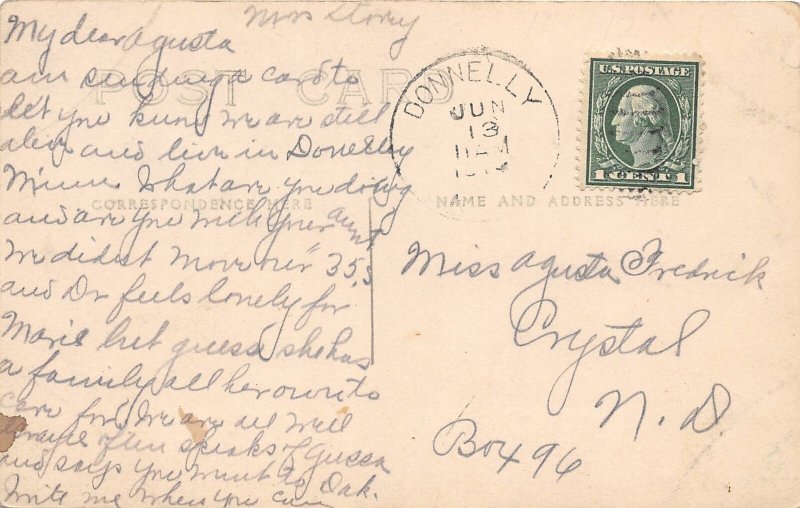 Mrs Story
My dear Agusta
am sending a card to
let you know we are still
alive and live in Donelley
Minn. What are you doing
and are you with your aunt
We didn't move our
and Dr feels lonely for
Marie but guess she has
a family all her own to
care for. We are all well
often speaks of Gussa
and says you went to Dak.
Write me when you can
POST CARD
CORRESPONDENCE HERE
NAME AND ADDRESS HERE
DONNELLY
JUN
13
11 AM
U.S. POSTAGE
1 CENT 1
Miss Agusta Fredrik
Crystal
N. D.
Box 96